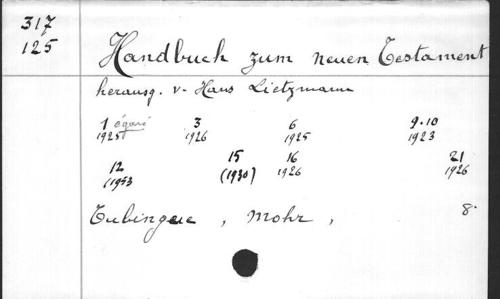 317
125
Handbuch zum neuen Testament
herausg. v. Hans Lietzmann
1 3 6 9.10
1925 1926 1925 1923
12 15 16 21
(1953 (1930) 1926 1926
Tubingen, Mohr, 8.